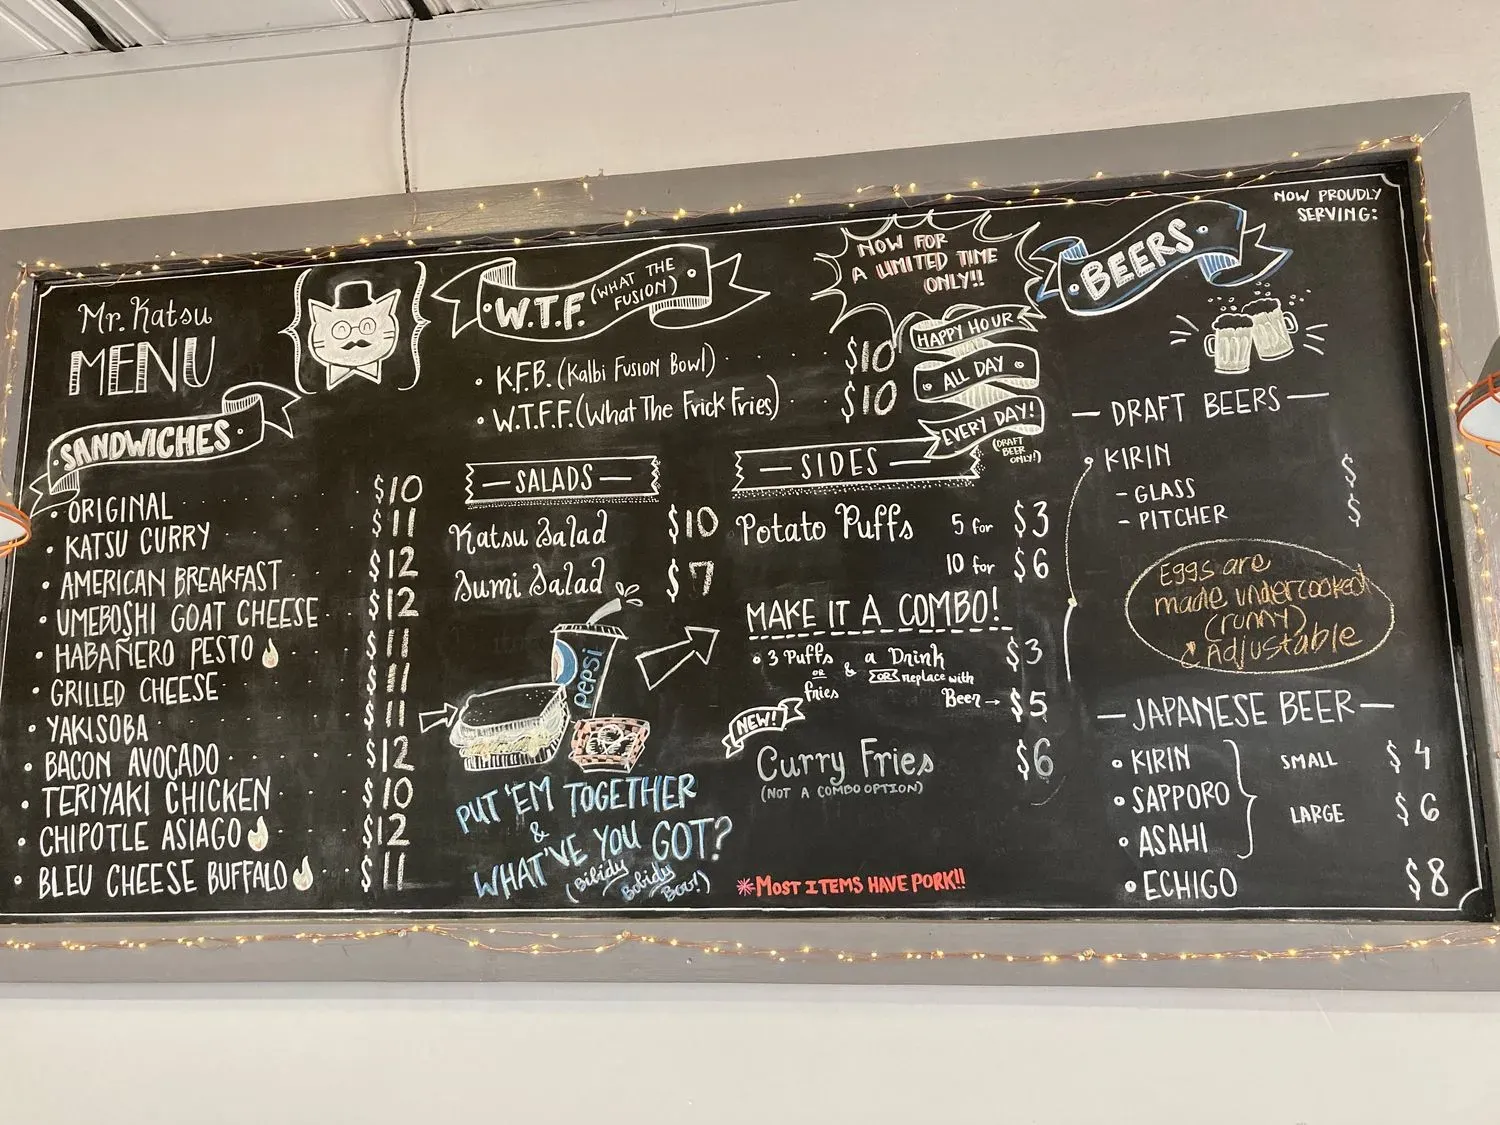 Mr. Katsu
MENU
SANDWICHES
• ORIGINAL . . . . $10
• KATSU CURRY $11
• AMERICAN BREAKFAST $12
• UMEBOSHI GOAT CHEESE $12
• HABAÑERO PESTO $11
• GRILLED CHEESE $11
• YAKISOBA $11
• BACON AVOCADO $12
• TERIYAKI CHICKEN $10
• CHIPOTLE ASIAGO $12
• BLEU CHEESE BUFFALO $11
W.T.F. (WHAT THE
FUSION)
• K.F.B. (Kalbi Fusion Bowl) $10
• W.T.F.F. (What The Frick Fries) $10
— SALADS —
Katsu Salad $10
Sumi Salad $7
pepsi
PUT 'EM TOGETHER
&
WHAT'VE YOU GOT?
(Bibidy
Bobidy
Boo!)
NOW FOR
A LIMITED TIME
ONLY!!
HAPPY HOUR
ALL DAY
EVERY DAY!
(DRAFT
BEER
ONLY!)
— SIDES —
Potato Puffs 5 for $3
10 for $6
MAKE IT A COMBO!
• 3 Puffs & a Drink $3
or
fries
OR replace with
Beer → $5
NEW!
Curry Fries $6
(NOT A COMBO OPTION)
*MOST ITEMS HAVE PORK!!
NOW PROUDLY
SERVING:
BEERS
— DRAFT BEERS —
• KIRIN
- GLASS $
- PITCHER $
Eggs are
made undercooked
(runny)
& Adjustable
— JAPANESE BEER —
• KIRIN
• SAPPORO
• ASAHI
SMALL $4
LARGE $6
• ECHIGO $8